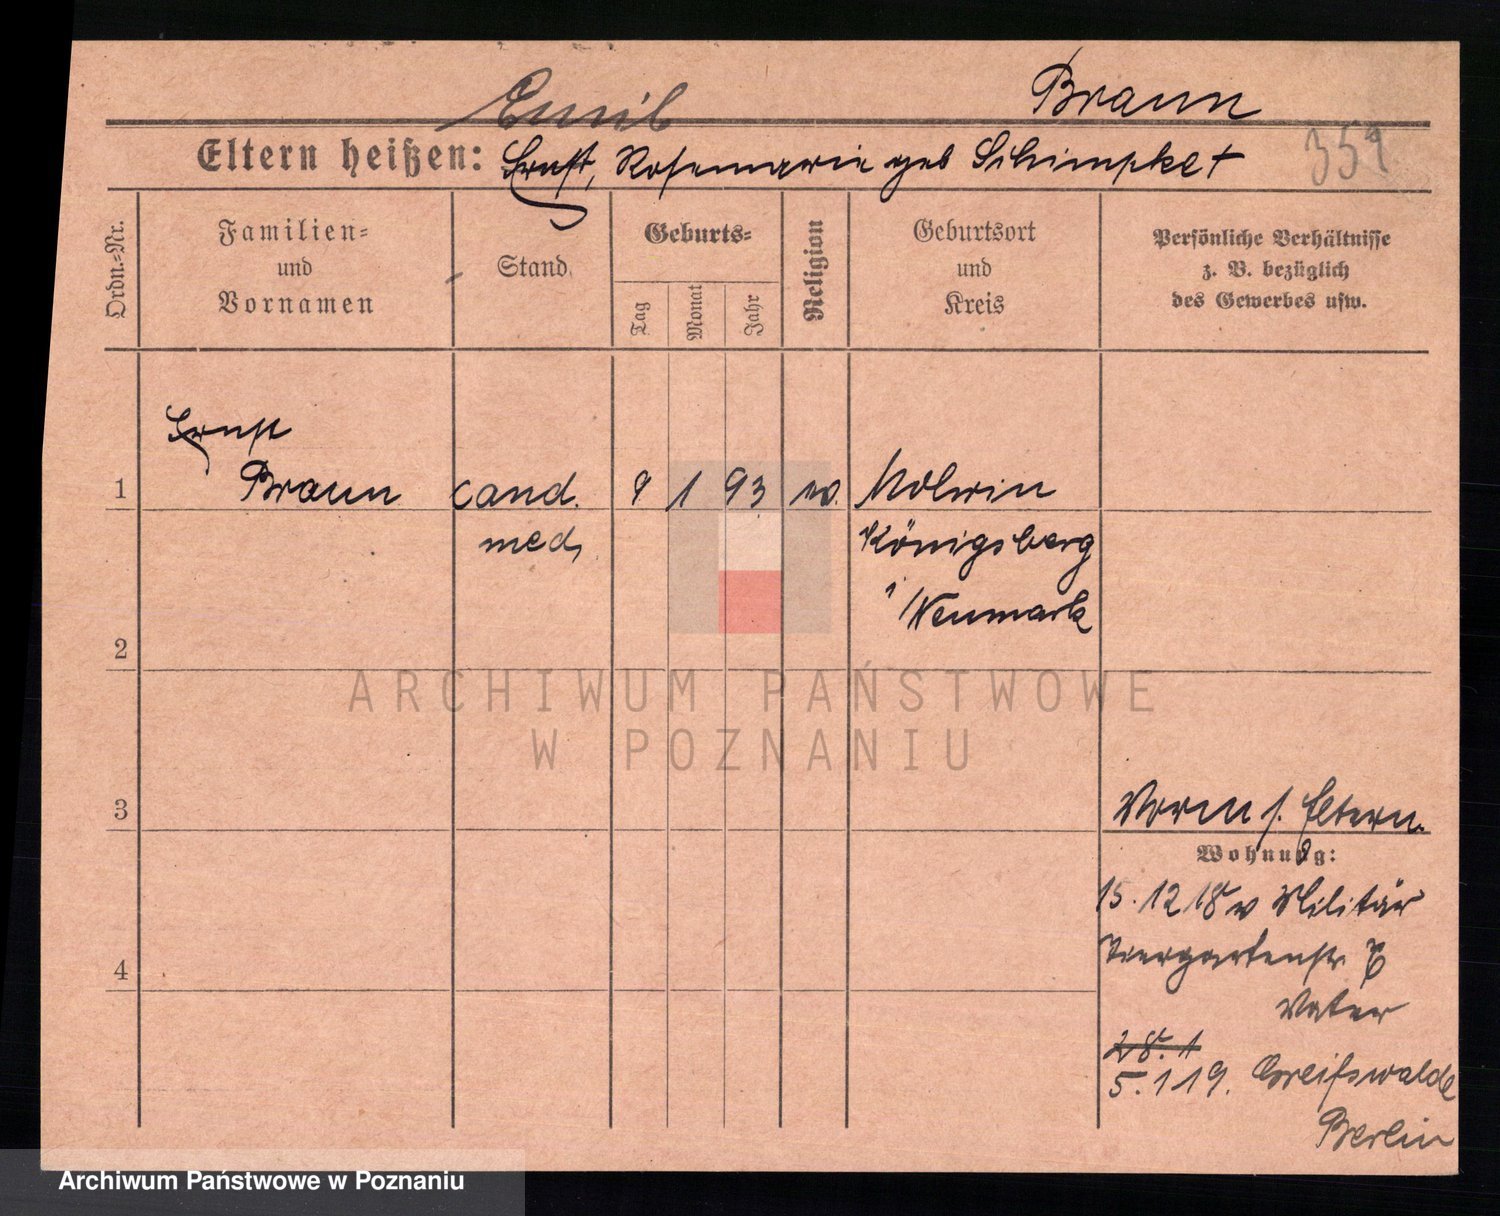 Emil Braun
Eltern heißen: Ernst, Rosemarie geb Schimpke +
359
Ordn.-Nr.
Familien-
und
Vornamen
Stand
Geburts-
Tag
Monat
Jahr
Religion
Geburtsort
und
Kreis
Persönliche Verhältnisse
z. B. bezüglich
des Gewerbes usw.
Ernst
1 Braun cand. 9 1 93 ev.
med.
Königsberg
i/Neumark
2
ARCHIWUM PAŃSTWOWE
W POZNANIU
3
Vorm s. Eltern.
Wohnung:
15.12 18 v Militär
Tiergartenstr 8
4
Vater
28. 1
5.1 19. Greifswalde
Berlin
Archiwum Państwowe w Poznaniu